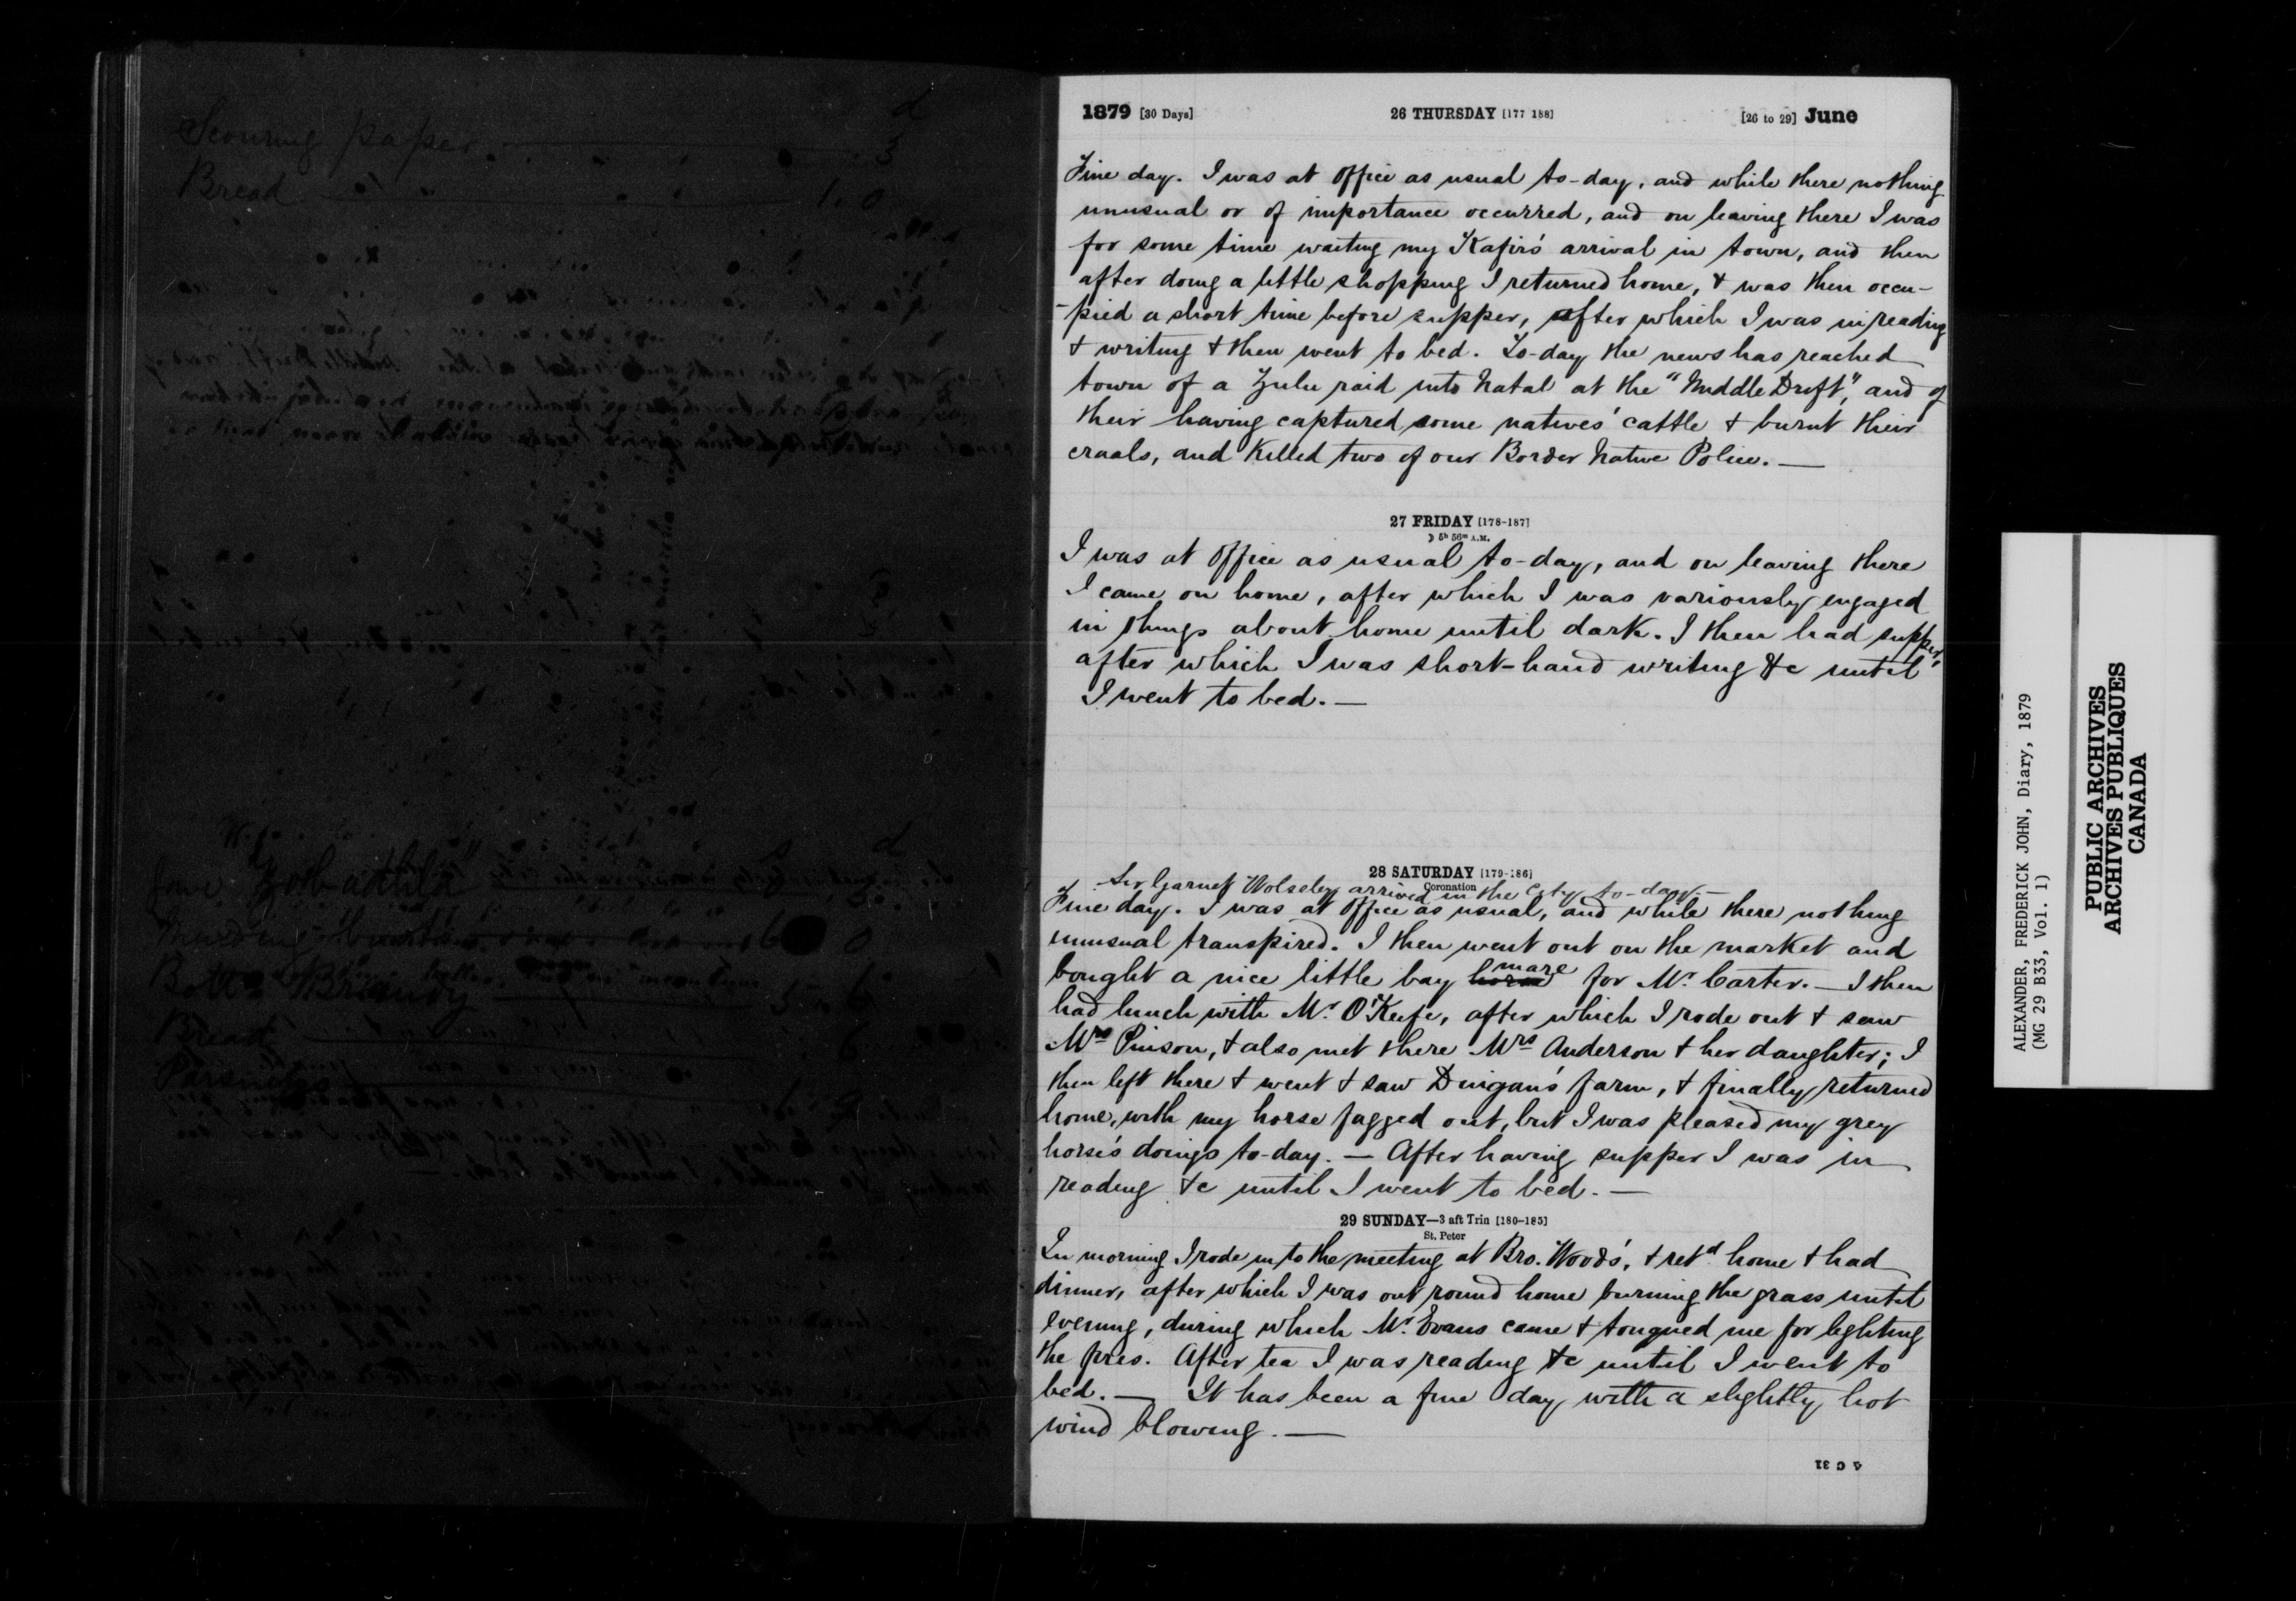 d
Scouring paper 3
Bread 1.0
s d
Bread 6
Parsnips
1879 [30 Days] 26 THURSDAY [177 188] [26 to 29] June
Fine day. I was at office as usual to-day, and while there nothing
unusual or of importance occurred, and on leaving there I was
for some time waiting my Kafir's arrival in town, and then
after doing a little shopping I returned home, & was then occu-
-pied a short time before supper, after which I was in reading
& writing & then went to bed. To-day the news has reached
town of a Zulu raid into Natal at the "Middle Drift", and of
their having captured some natives' cattle & burnt their
craals, and killed two of our Border Native Police. —
27 FRIDAY [178-187]
☽ 5h 56m A.M.
I was at office as usual to-day, and on leaving there
I came on home, after which I was variously engaged
in things about home until dark. I then had supper,
after which I was short-hand writing &c until
I went to bed. —
28 SATURDAY [179-186]
Coronation
Sir Garnet Wolseley arrived in the City to-day. —
Fine day. I was at office as usual, and while there nothing
unusual transpired. I then went out on the market and
bought a nice little bay horse mare for Mr. Carter. — I then
had lunch with Mr. O'Keefe, after which I rode out & saw
Mrs Pinson, & also met there Mrs Anderson & her daughter; I
then left there & went & saw Duigan's farm, & finally returned
home, with my horse fagged out, but I was pleased my grey
horse's doings to-day. — After having supper I was in
reading &c until I went to bed. —
29 SUNDAY—3 aft Trin [180-185]
St. Peter
In morning I rode in to the meeting at Bro. Woods', & retd home & had
dinner, after which I was out round home burning the grass until
evening, during which Mr. Evans came & tongued me for lighting
the fires. After tea I was reading &c until I went to
bed. — It has been a fine day with a slightly hot
wind blowing. —
4 C 31
ALEXANDER, FREDERICK JOHN, Diary, 1879
(MG 29 B33, Vol. 1)
PUBLIC ARCHIVES
ARCHIVES PUBLIQUES
CANADA